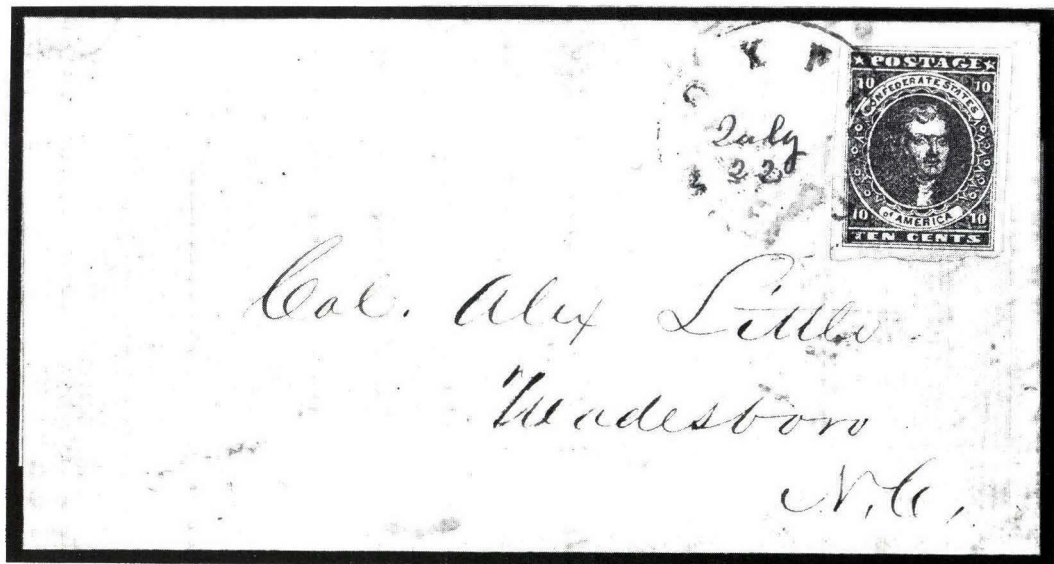 July
22
★ POSTAGE ★
10 10
CONFEDERATE STATES
of AMERICA
10 10
TEN CENTS
Col. Alex Little
Wadesboro
N.C.